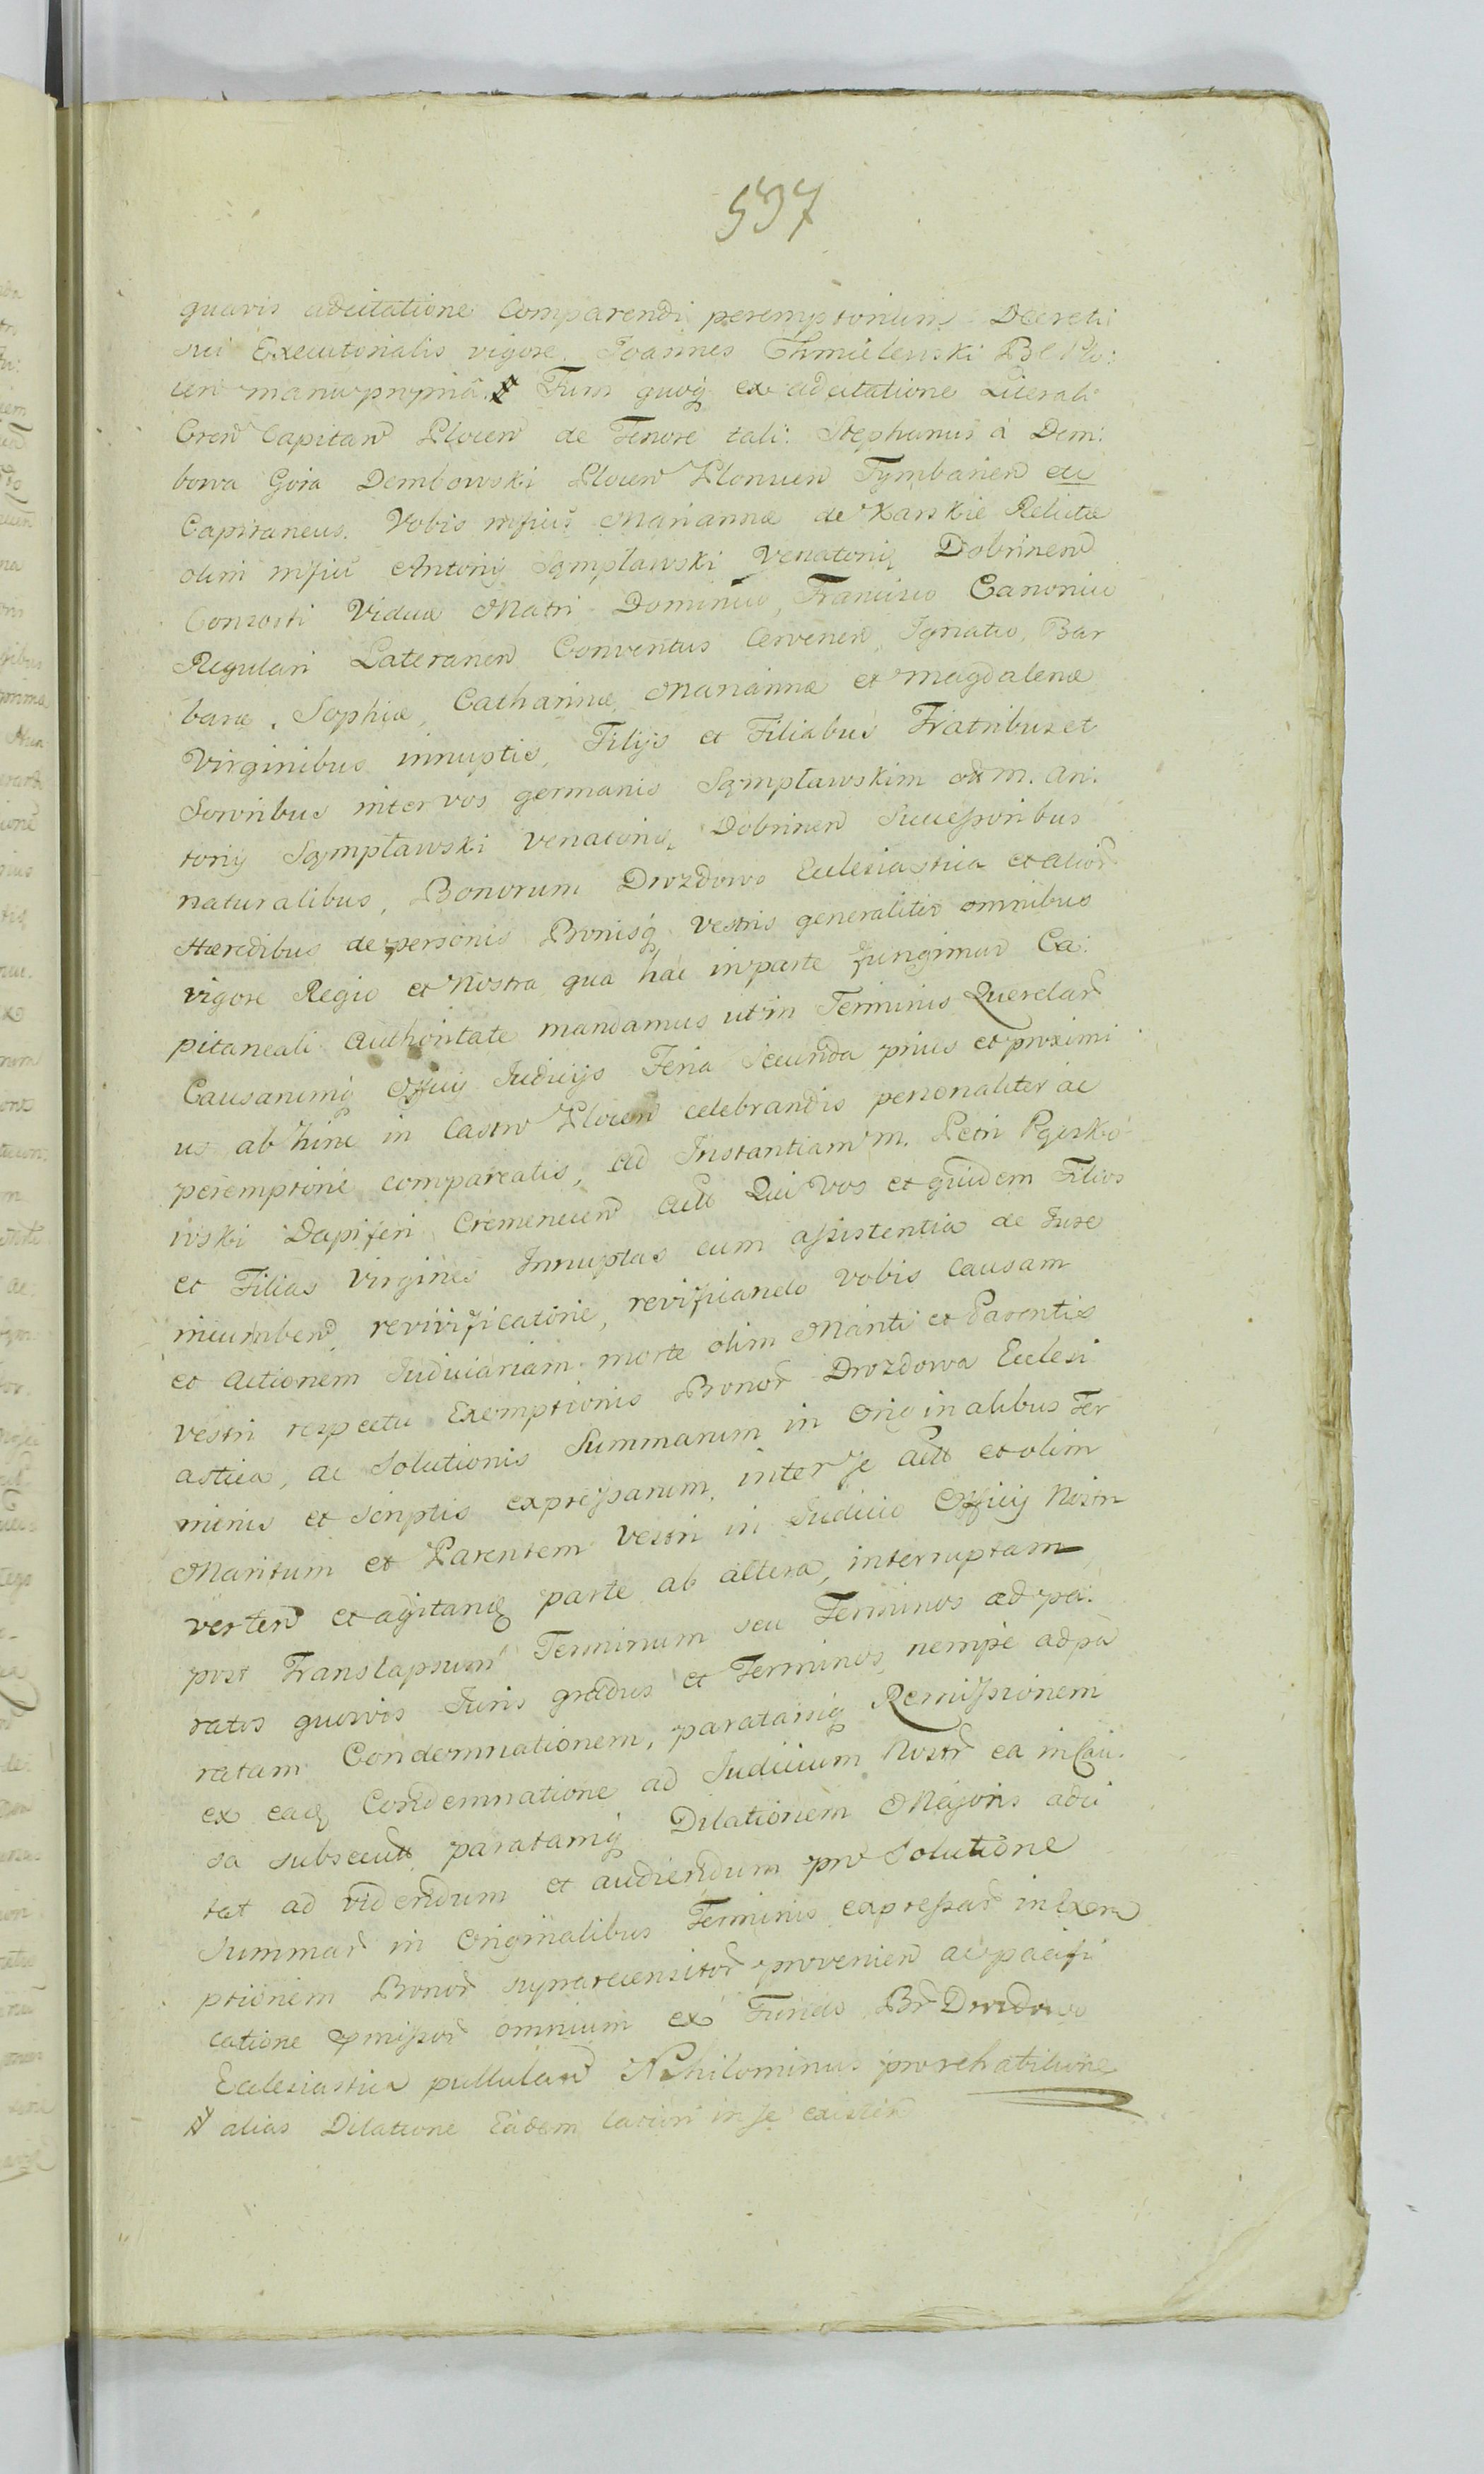 537
quavis adcitatione Comparendi peremptorium Decreti
sui Executorialis vigore. Joannes Chmielewski
manu propria. Tum quoq ex adcitatione Literali
Capitan Plocen de Tenore tali: Stephanus à Dem:
bowa Góra Dembowski Plocen Plonscen Tymbarien etc
Capitaneus. Vobis Mficis Mariannæ de Karskie Relictæ
olim Mfici Antonij Sąmpławski Venatoris Dobrinen
Consorti Viduæ Matri Dominico, Francisco Canonico
Regulari Lateranen Conventus Cervenen, Ignatio, Bar
baræ, Sophiæ, Catharinæ, Mariannæ et Magdalenæ
Virginibus innuptis, Filijs et Filiabus Fratribus et
Sororibus inter vos germanis Sąmpławskim M. An:
tonij Sąmpławski Venatoris Dobrinen Successoribus
naturalibus, Bonorum Drozdowo Ecclesiastica et alior
Hæredibus de personis Bonisq Vestris generaliter omnibus
vigore Regia et Nostra qua hac in parte fungimur Ca:
pitaneali Authoritate mandamus ut in Terminis Querelar
Causarumq Officij Judicijs Feria Secunda prius et proximi
us ab hinc in Castro Plocen celebrandis personaliter ac
peremptorie compareatis, ad Instantiam M. Petri Pgesko
wski Dapiferi Cremenecen Actis Qui Vos et quidem Filios
et Filias Virgines Innuptas cum assistentia de Jure
incumben, revivificatorie, revificando Vobis Causam
et Actionem Judiciariam morte olim Mariti et Parentis
vestri respectu Exemptionis Bonor Drozdowa Ecclesi
astica, ac Solutionis Summarum in Originalibus Ter
minis et Scriptis expressarum, inter se et olim
Maritum et Parentem Vestri in Judicio Officij Nostri
verten et agitanq parte ab altera, interruptam
post Translapsum Terminum seu Terminos ad pa:
ratos quosvis Juris gradus et Terminos, nempe ad pa
ratam Condemnationem, paratamq Remissionem
ex eaq Condemnatione ad Judicium Nostr ea in Cau:
sa subsecut paratamq Dilationem Majoris adci
tat ad videndum et audiendum pro Solutione
Summar in Originalibus Terminis expressar in Exem
ptionem Bonor suprarecensitor provenien ac pacifi
catione omnium ex Fundo Br Drozdowo
Ecclesiastica pullulan Nihilominus pro rehabitione
alias Dilatione Eadem latiori in se existen